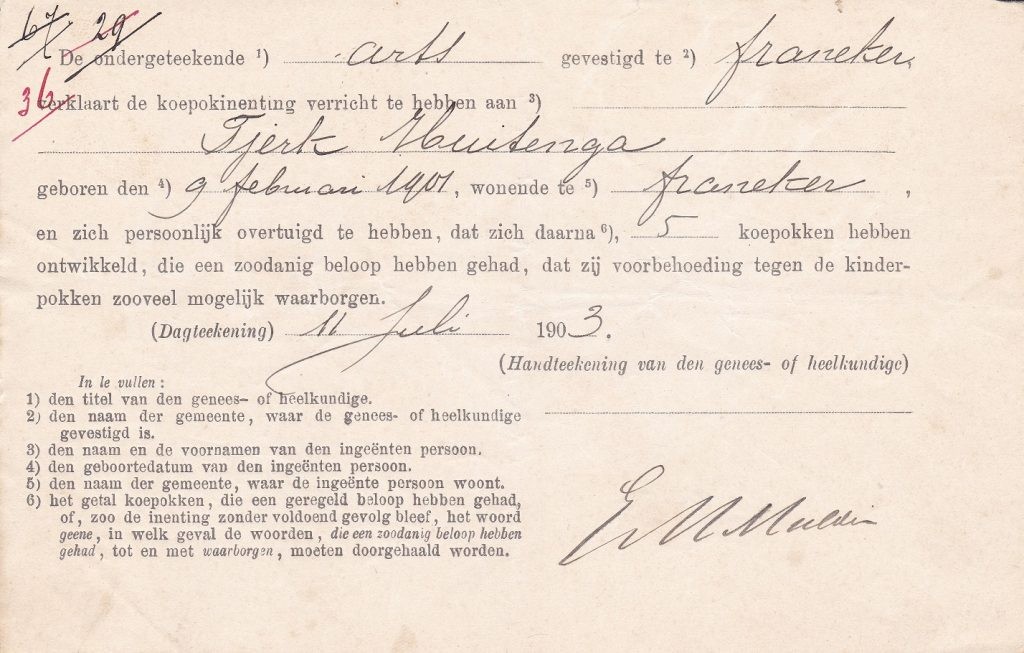 67 29
De ondergeteekende 1) arts gevestigd te 2) franeker,
36
verklaart de koepokinenting verricht te hebben aan 3)
Tjerk Huitenga
geboren den 4) 9 februari 1901, wonende te 5) franeker,
en zich persoonlijk overtuigd te hebben, dat zich daarna 6), 5 koepokken hebben
ontwikkeld, die een zoodanig beloop hebben gehad, dat zij voorbehoeding tegen de kinder-
pokken zooveel mogelijk waarborgen.
(Dagteekening) 11 Juli 1903.
(Handteekening van den genees- of heelkundige)
In te vullen:
1) den titel van den genees- of heelkundige.
2) den naam der gemeente, waar de genees- of heelkundige
gevestigd is.
3) den naam en de voornamen van den ingeënten persoon.
4) den geboortedatum van den ingeënten persoon.
5) den naam der gemeente, waar de ingeënte persoon woont.
6) het getal koepokken, die een geregeld beloop hebben gehad,
of, zoo de inenting zonder voldoend gevolg bleef, het woord
geene, in welk geval de woorden, die een zoodanig beloop hebben
gehad, tot en met waarborgen, moeten doorgehaald worden.
E M Mulder